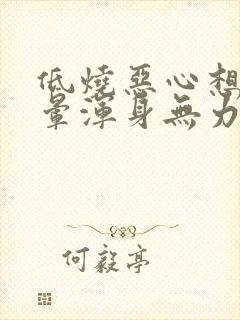 低燒惡心想
暈渾身無力
何毅亭